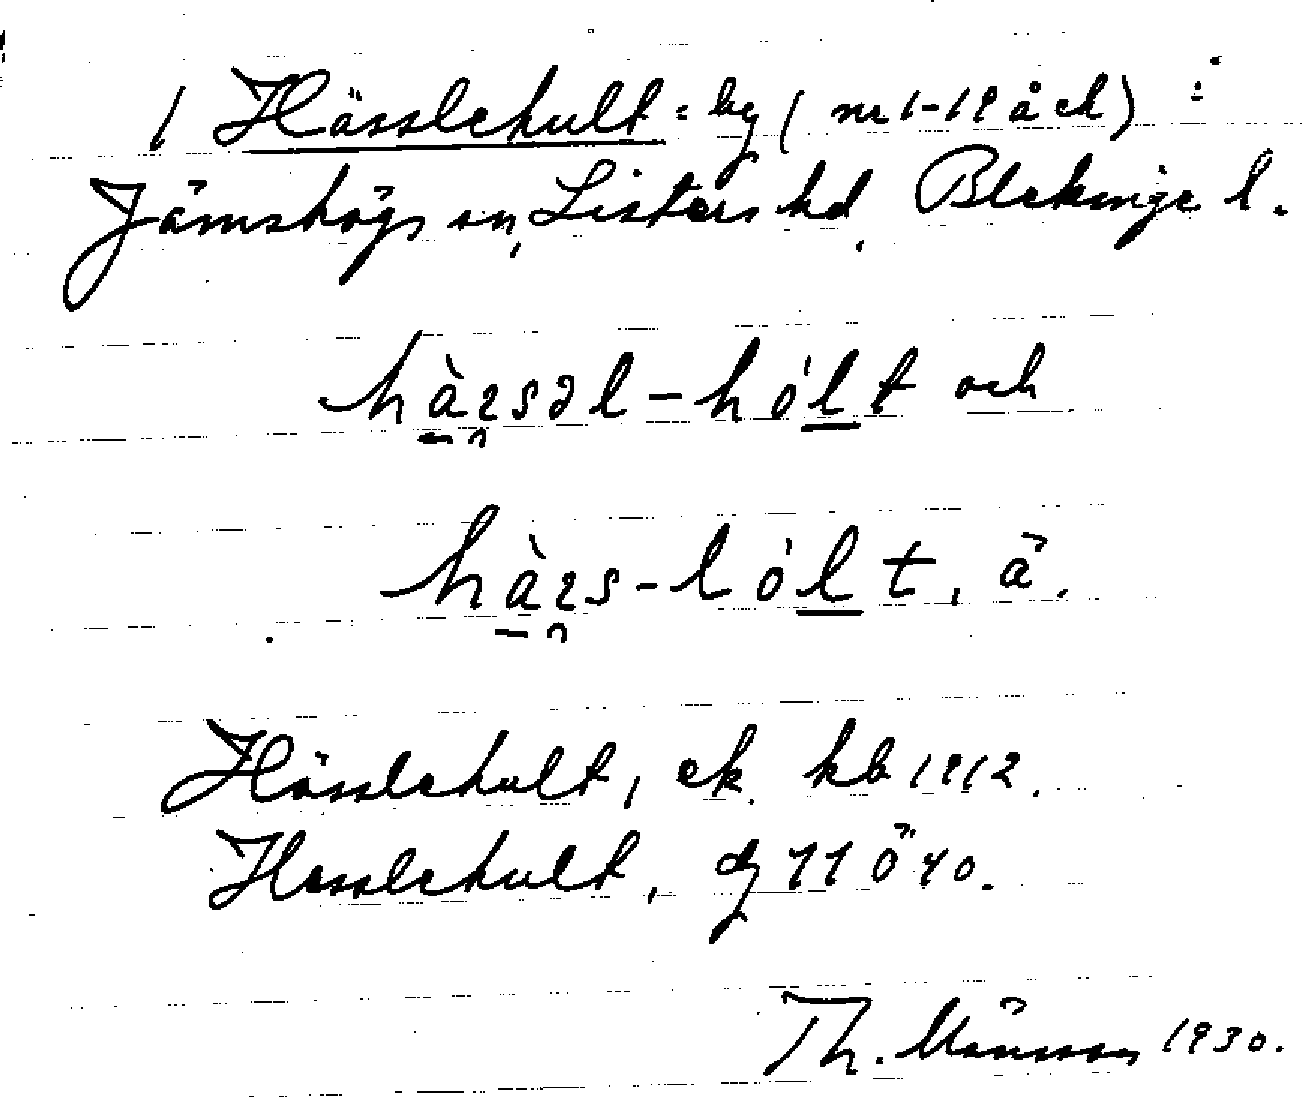 / Hässlehult = by ( nr 1-19 å ek ) i
Jämshögs sn, Listers hd, Blekinge l.
hàꝛsəl-hólt och
hàꝛs-lólt, ä.
Hässlehult, ek. kb 1912.
Hesslehult, dg 11 Ö 40.
Th. Månsson 1930.